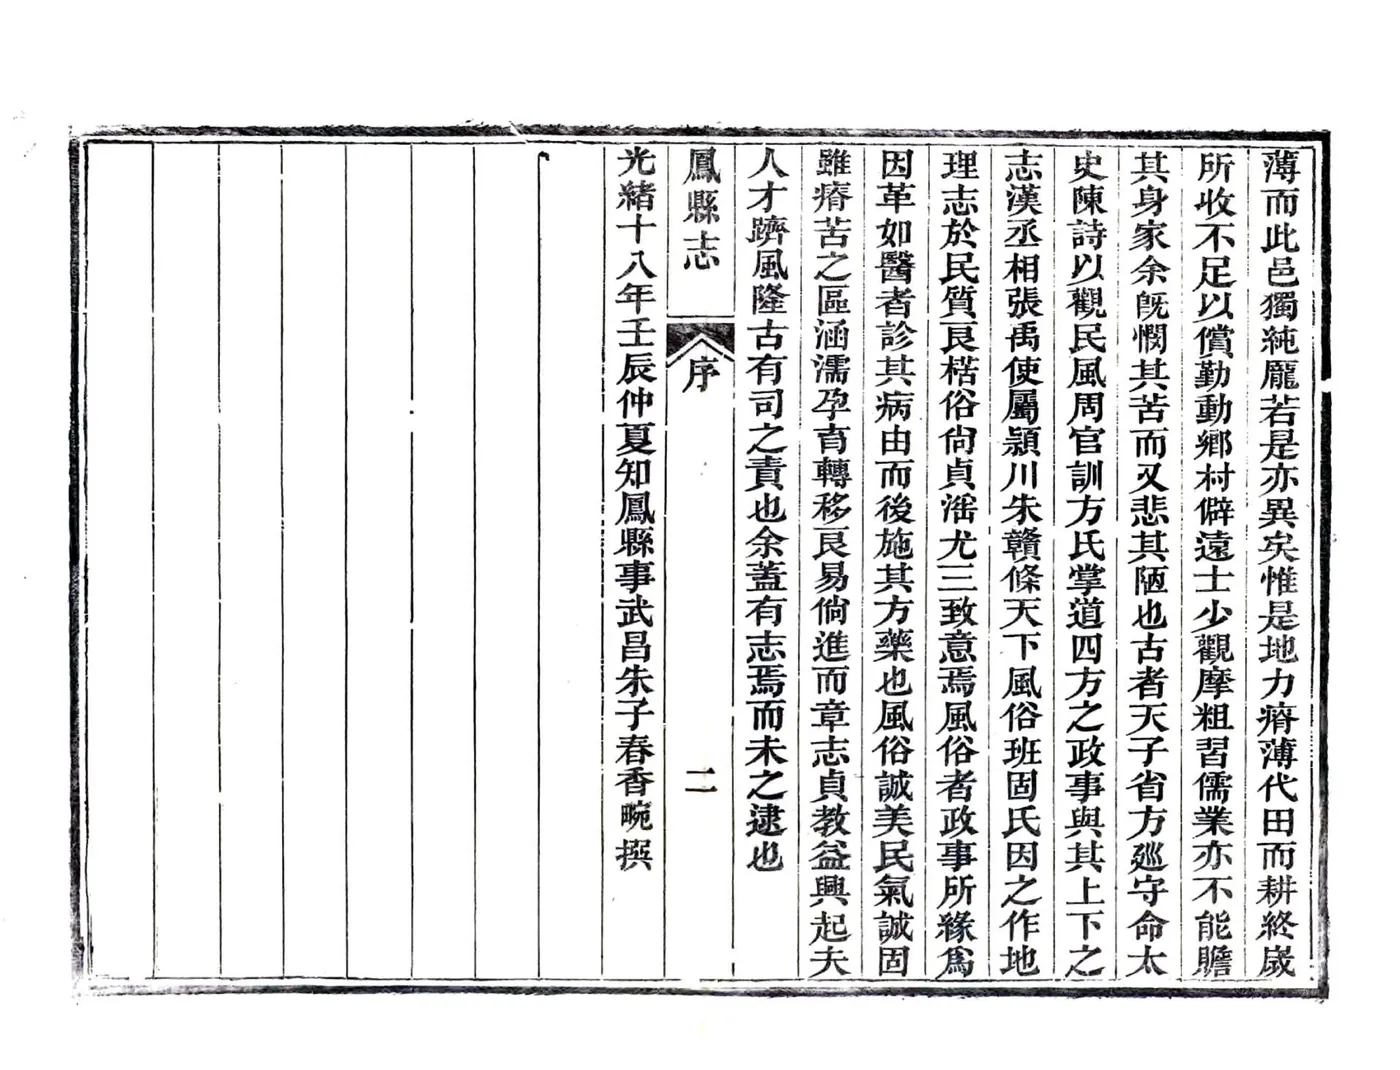 薄而此邑獨純龎若是亦異矣惟是地力瘠薄代田而耕終歲
所收不足以償勤動鄉村僻遠士少觀摩粗習儒業亦不能贍
其身家余旣憫其苦而又悲其陋也古者天子省方廵守命太
史陳詩以觀民風周官訓方氏掌道四方之政事與其上下之
志漢丞相張禹使屬潁川朱贛條天下風俗班固氏因之作地
理志於民質良楛俗尙貞滛尤三致意焉風俗者政事所緣爲
因革如醫者診其病由而後施其方藥也風俗誠美民氣誠固
雖瘠苦之區涵濡孕育轉移良易倘進而章志貞教益興起夫
人才躋風隆古有司之責也余葢有志焉而未之逮也
鳳縣志
序
二
光緒十八年壬辰仲夏知鳳縣事武昌朱子春香畹撰